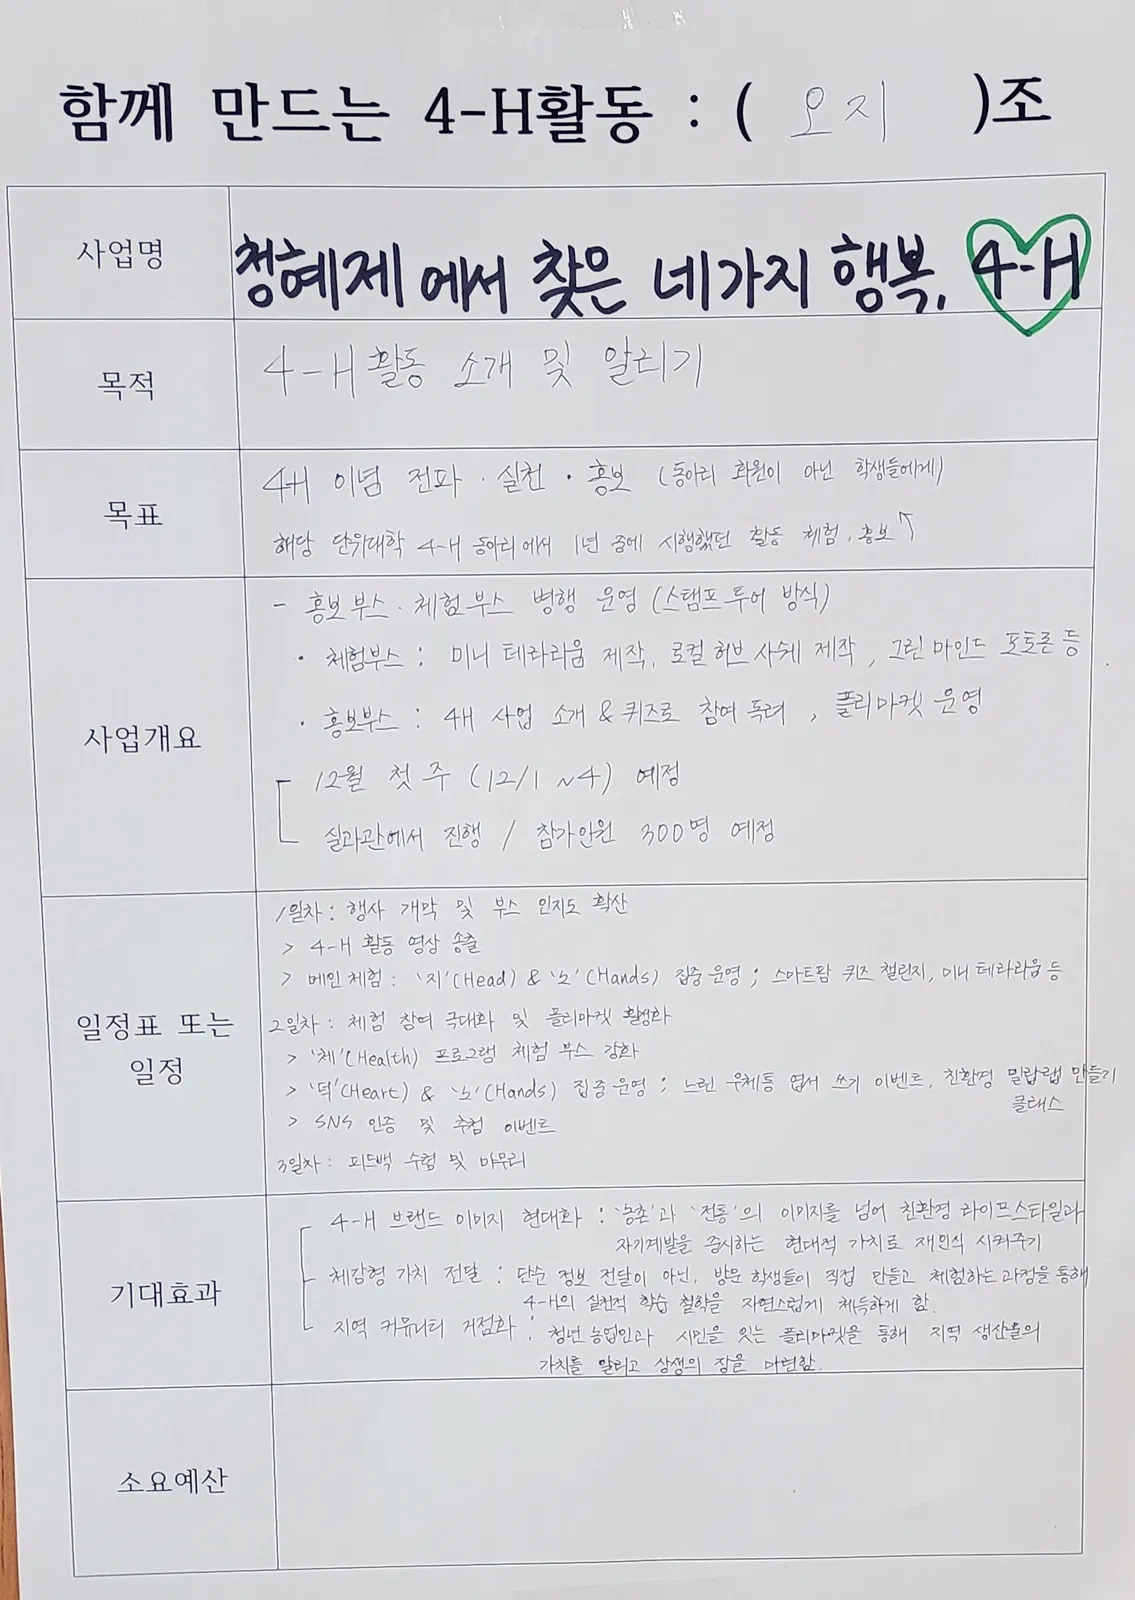 함께 만드는 4-H활동 : ( 오지 )조
사업명
청혜제에서 찾은 네가지 행복, 4-H
목적
4-H활동 소개 및 알리기
목표
4H 이념 전파 · 실천 · 홍보 (동아리 회원이 아닌 학생들에게)
해당 단위대학 4-H 동아리에서 1년 중에 시행했던 활동 체험, 홍보↑
사업개요
- 홍보부스·체험부스 병행 운영 (스탬프투어 방식)
· 체험부스 : 미니 테라리움 제작, 로컬 허브 사쉐 제작, 그린 마인드 포토존 등
· 홍보부스 : 4H 사업 소개 & 퀴즈로 참여 독려, 플리마켓 운영
12월 첫 주 (12/1 ~4) 예정
실과관에서 진행 / 참가인원 300명 예정
일정표 또는
일정
1일차 : 행사 개막 및 부스 인지도 확산
> 4-H 활동 영상 송출
> 메인 체험 : '지'(Head) & '노'(Hands) 집중 운영 ; 스마트팜 퀴즈 챌린지, 미니 테라리움 등
2일차 : 체험 참여 극대화 및 플리마켓 활성화
> '체'(Health) 프로그램 체험 부스 강화
> '덕'(Heart) & '노'(Hands) 집중 운영 ; 느린 우체통 엽서 쓰기 이벤트, 친환경 밀랍랩 만들기
클래스
> SNS 인증 및 추첨 이벤트
3일차 : 피드백 수렴 및 마무리
기대효과
4-H 브랜드 이미지 현대화 : '농촌'과 '전통'의 이미지를 넘어 친환경 라이프스타일과
자기계발을 중시하는 현대적 가치로 재인식 시켜주기
체감형 가치 전달 : 단순 정보 전달이 아닌, 방문 학생들이 직접 만들고 체험하는 과정을 통해
4-H의 실천적 학습 철학을 자연스럽게 체득하게 함.
지역 커뮤니티 거점화 : 청년 농업인과 시민을 잇는 플리마켓을 통해 지역 생산물의
가치를 알리고 상생의 장을 마련함.
소요예산